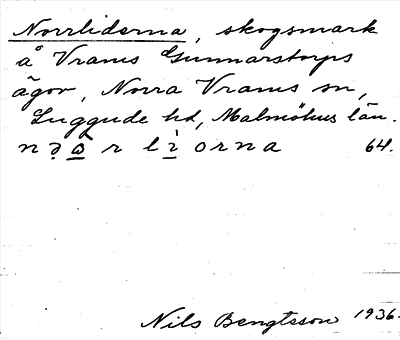 Norrliderna, skogsmark
å Vrams Gunnarstorps
ägor, Norra Vrams sn,
Luggude hd, Malmöhus län.
n ə̣ ὰ̲ r l ì̲ o r n a 64.
Nils Bengtsson 1936.